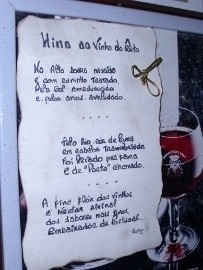 Hino ao Vinho do Porto
No Alto Douro nascido
e com carinho tratado
Pelo Sol amadurecido
e pelos anos aveludado.
....
Pelo Rio
em rabelos transportado
Foi levado pra fama
e de "Porto" chamado.
....
A fina flor dos vinhos
e néctar divinal
dos sabores mais finos
Embaixador de Portugal.